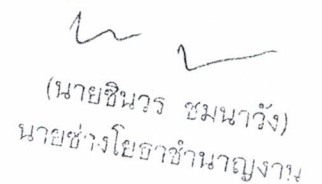 (นายชินวร ชมนาวัง)
นายช่างโยธาชำนาญงาน